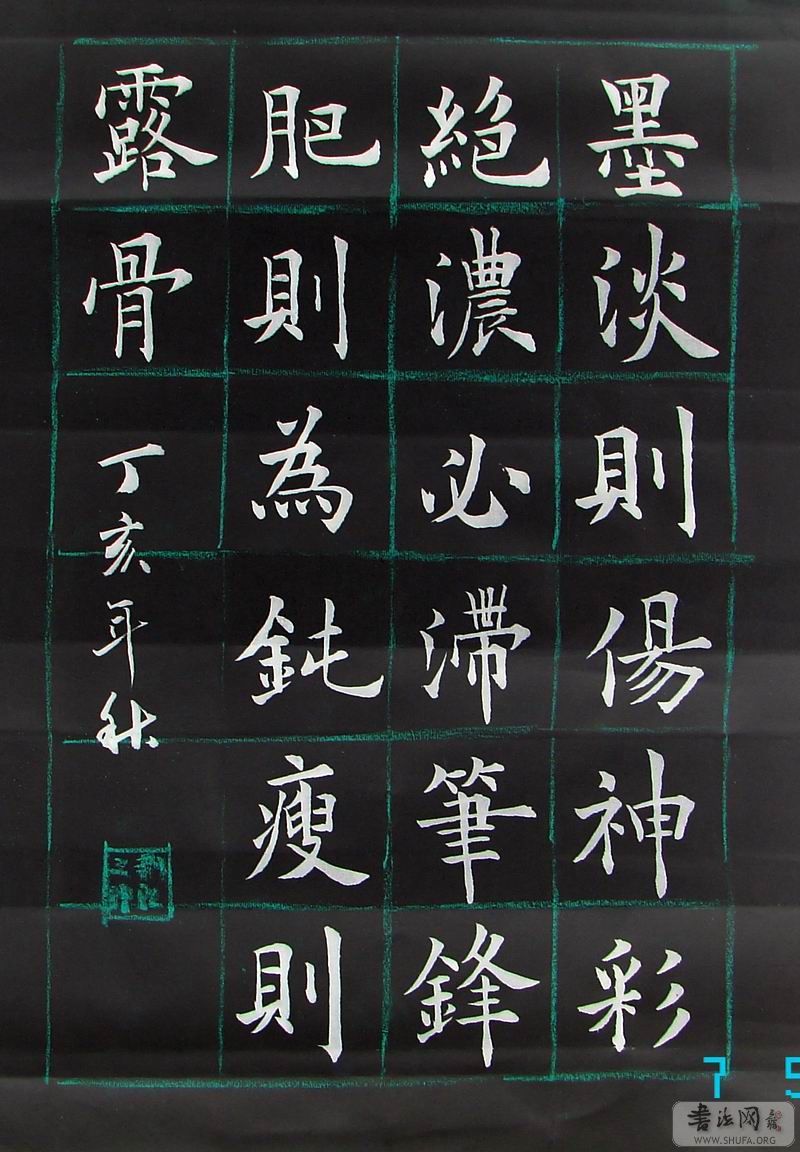 墨淡則傷神彩
絕濃必滯筆鋒
肥則為鈍瘦則
露骨
丁亥年秋
7 5
书法网
WWW.SHUFA.ORG